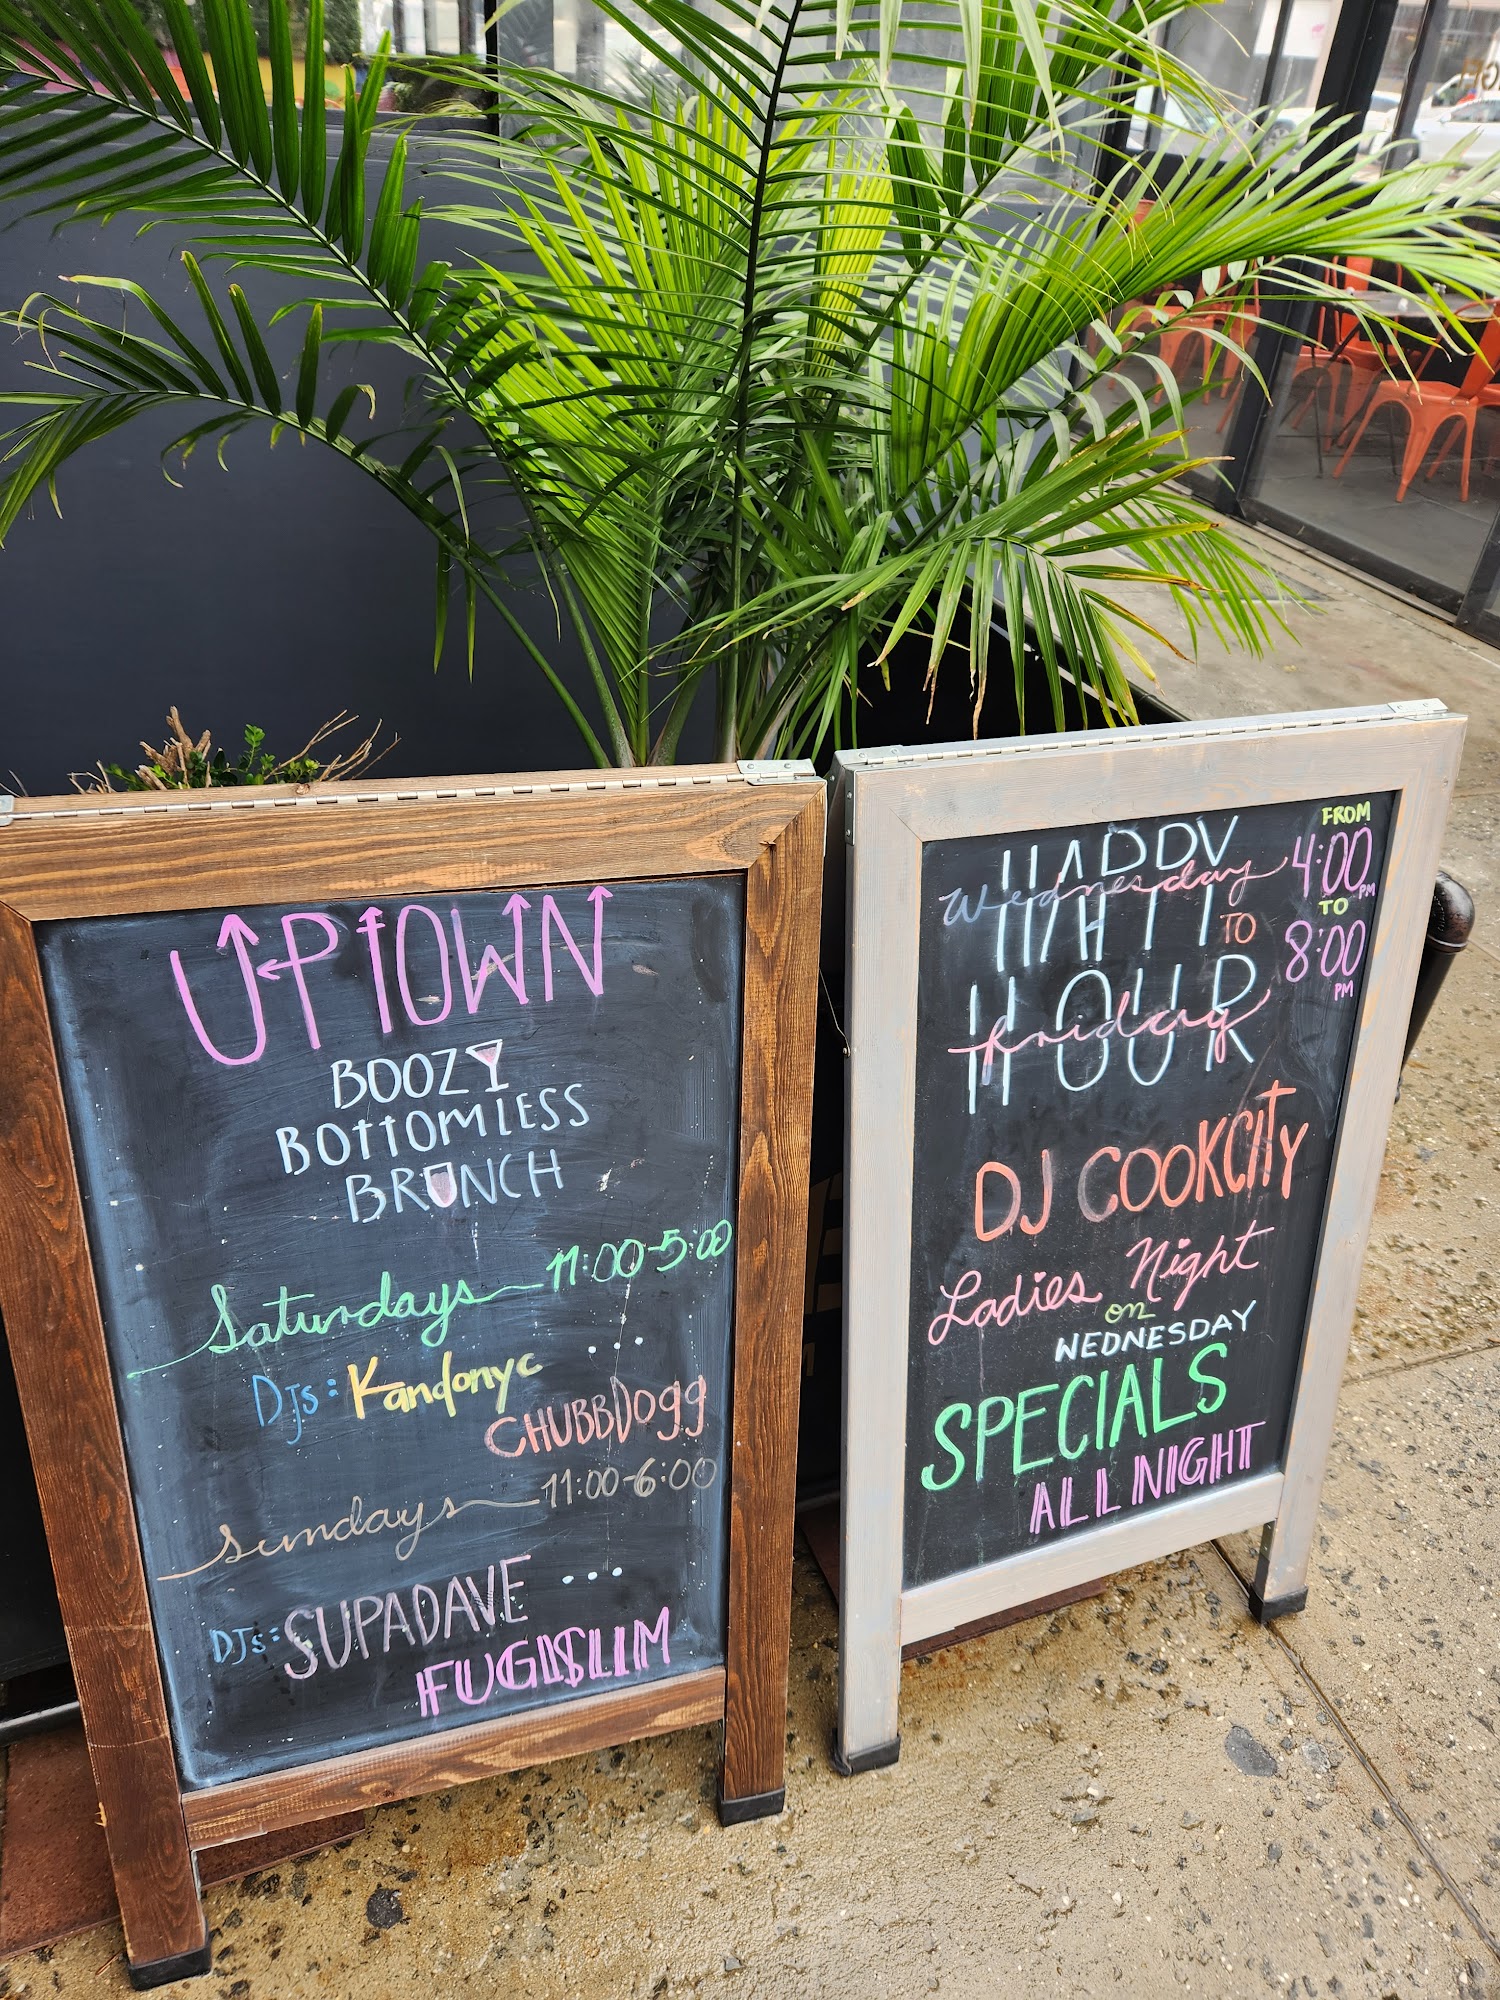 UPTOWN
BOOZY
BOTTOMLESS
BRUNCH
Saturdays 11:00-5:00
DJs: Kandonyc ...
CHUBBDogg
Sundays 11:00-6:00
DJs: SUPADAVE ...
FUGISLIM
HAPPY
Wednesday
TO
HOUR
friday
FROM
4:00
PM
TO
8:00
PM
DJ COOKCITY
Ladies Night
on
WEDNESDAY
SPECIALS
ALL NIGHT